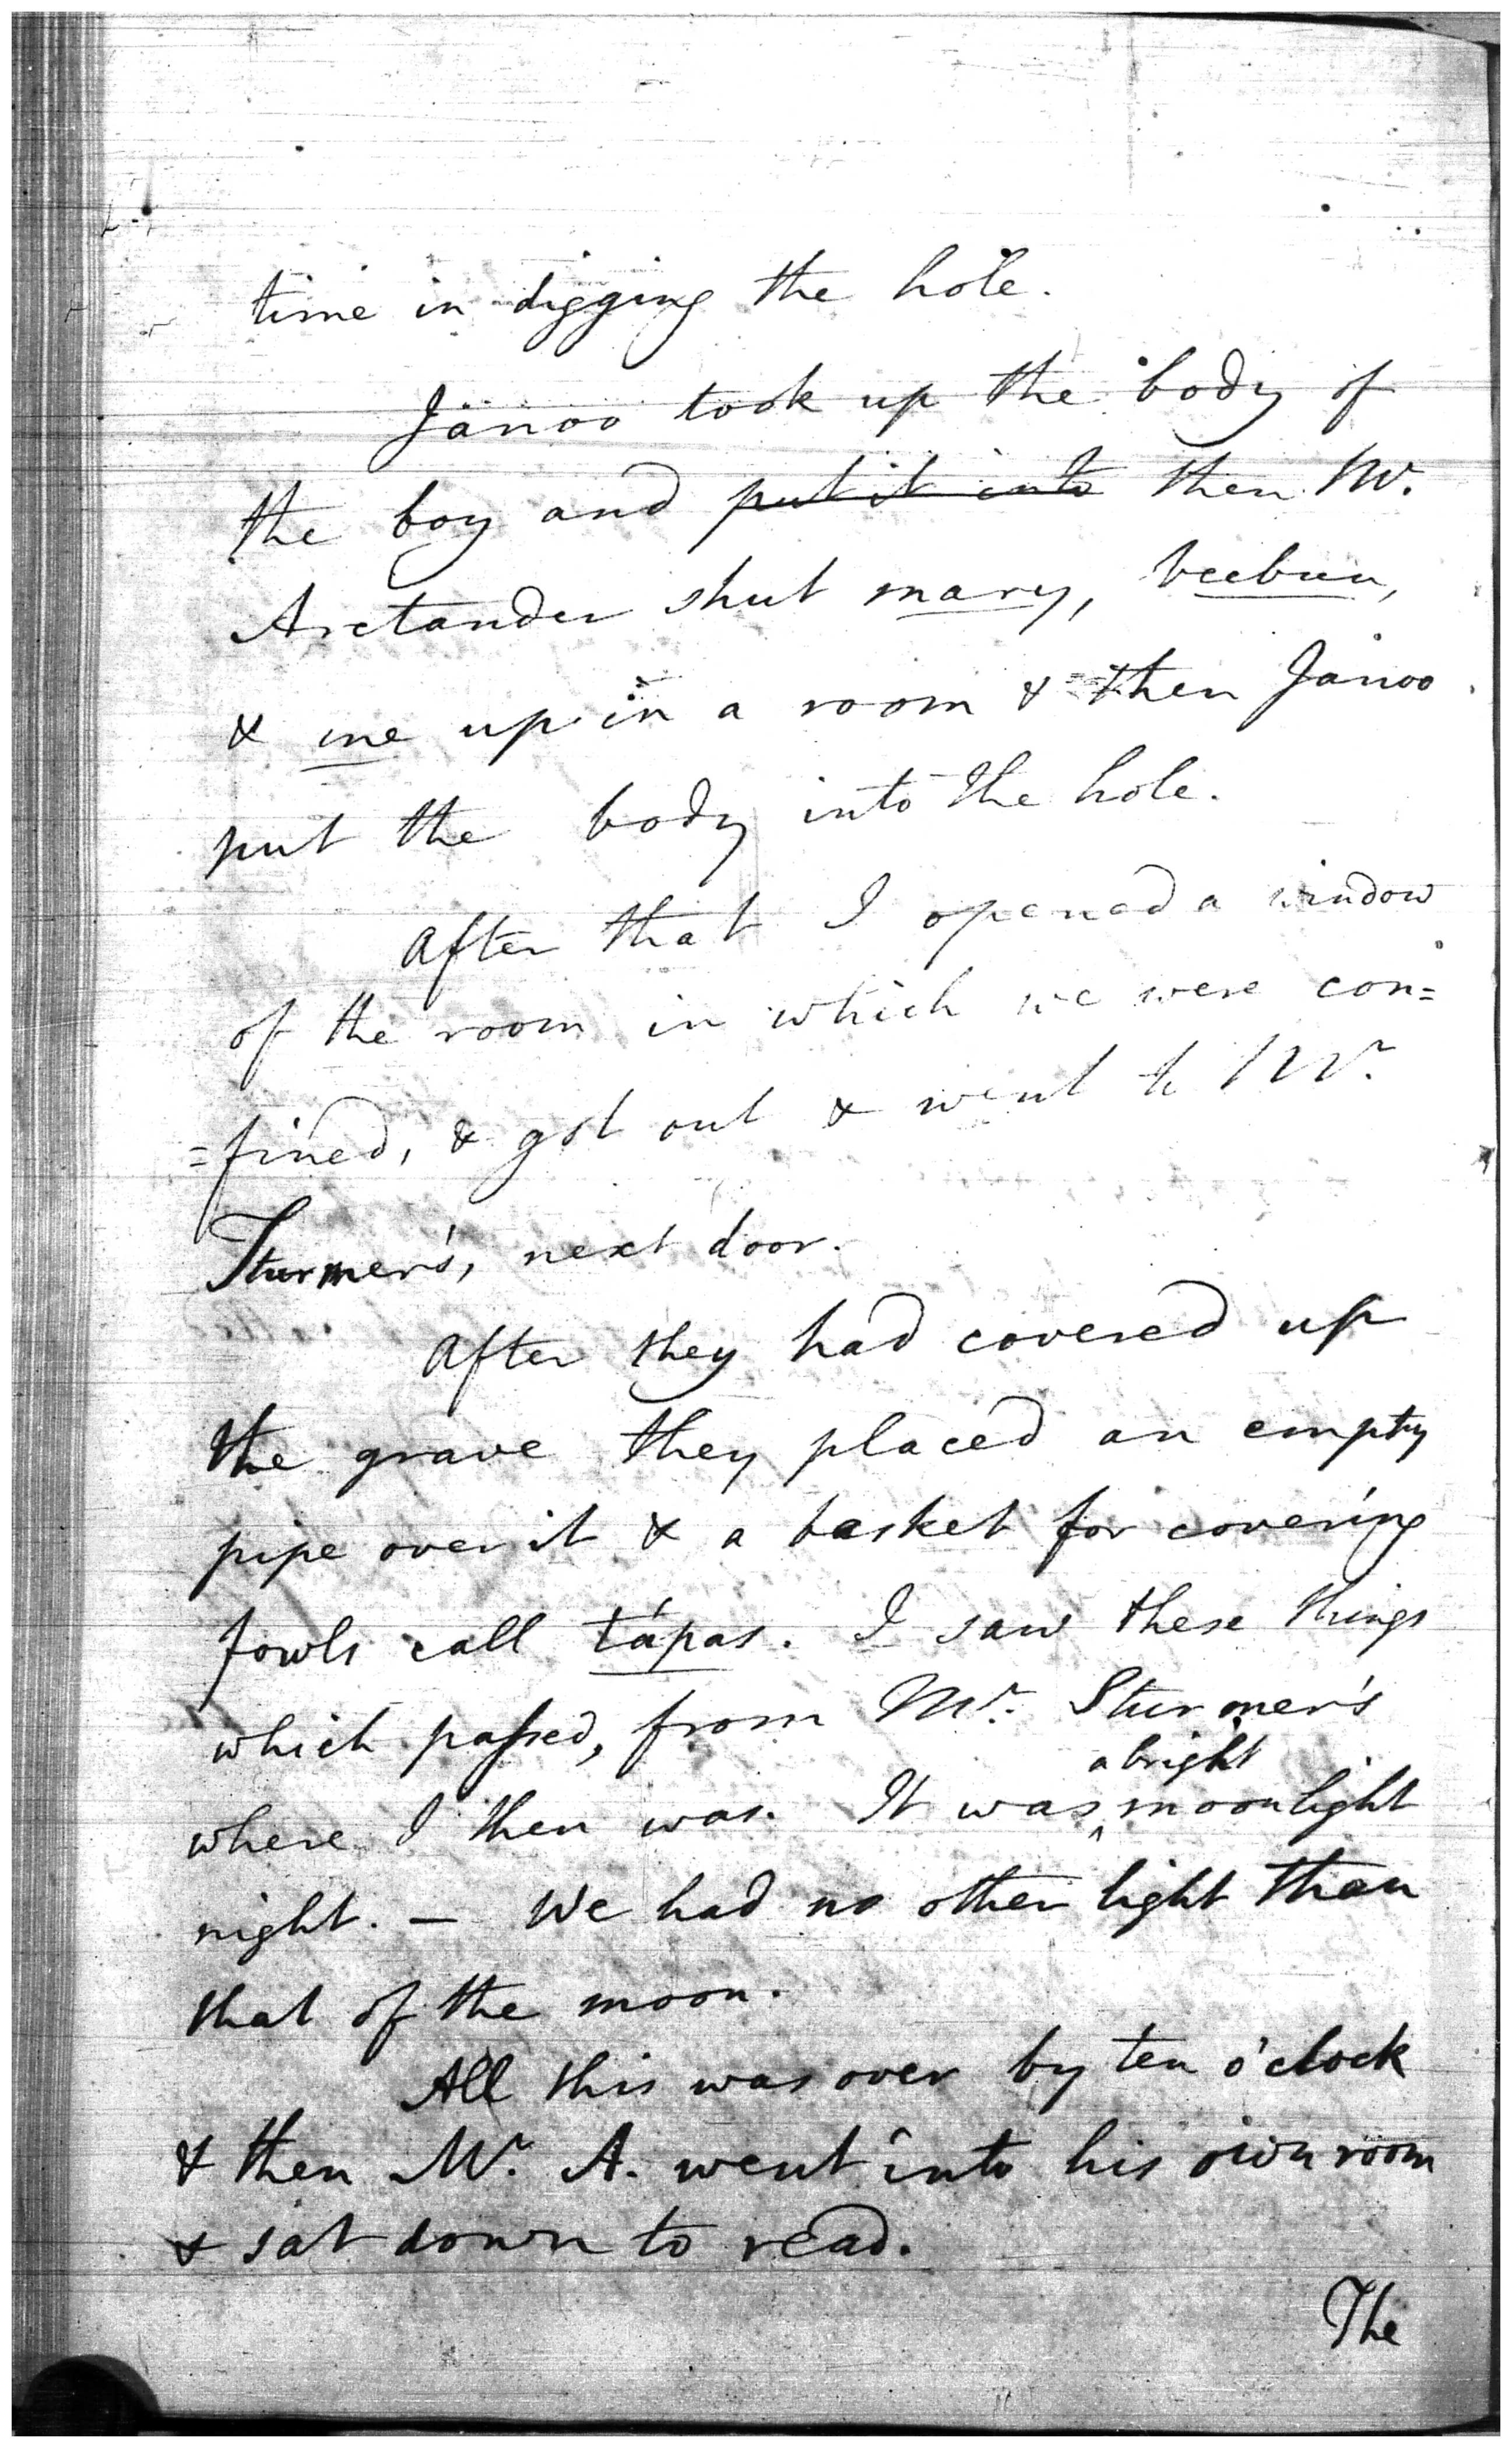 time in digging the hole.
Janoo took up the body of
the boy and put it into then Mr.
Aretander shut mary, beebun,
& me up in a room & then Janoo
put the body into the hole.
After that I opened a window
of the room in which we were con=
=fined, & got out & went to Mr.
Sturmer's, next door.
After they had covered up
the grave they placed an empty
pipe over it & a basket for covering
fowls call tápas. I saw these things
which passed, from Mr. Sturmer's
a bright
where I then was. It was ^ moonlight
night. – We had no other light than
that of the moon.
All this was over by ten o'clock
& then Mr. A. went into his own room
& sat down to read.
The